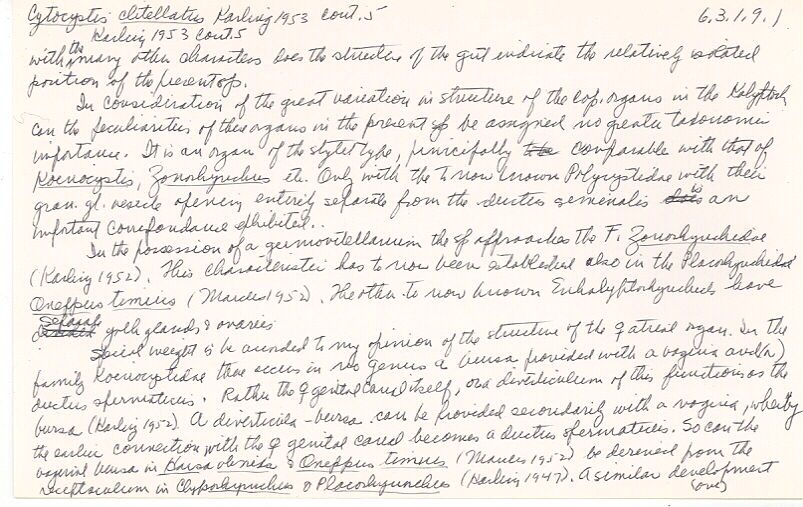 Cytocystis clitellatus Karling 1953 cont. 5 6.3.1.9.1
Karling 1953 cont. 5
with the many other characters does the structure of the gut indicate the relatively isolated
position of the present sp.
In consideration of the great variation in structure of the cop. organs in the Kalyptorh.
can the peculiarities of these organs in the present sp be assigned no greater taxonomic
importance. It is an organ of the stylet type, principally comparable with that of
Koenocystis, Zonorhynchus etc. Only with the to now known Polycystidae with their
gran. gl. vesicle opening entirely separate from the ductus seminalis is an
important correspondance exhibited..
In the possession of a germovitellarium the sp approaches the F. Zonorhynchidae
(Karling 1952). This characteristic has to now been established also in the Placorhynchidae
Oneppus timius (Marcus 1952). The other to now known Eukalyptorhynchids have
separate yolk glands & ovaries
Special weight is be accorded to my opinion of the structure of the ♀ atrial organ. In the
family Koenocystidae there occurs in no genus a bursa provided with a vagina and(n)
ductus spermaticus. Rather the ♀ genital canal itself, or a diverticulum of this functions as the
bursa (Karling 1952). A diverticula-bursa can be provided secondarily with a vagina, whereby
the earlier connection with the ♀ genital canal becomes a ductus spermaticus. So can the
vaginal bursa in & Oneppus timius (Marcus 1952) be derived from the
receptaculum in Clyporhynchus & Placorhynchus (Karling 1947). A similar development
(over)